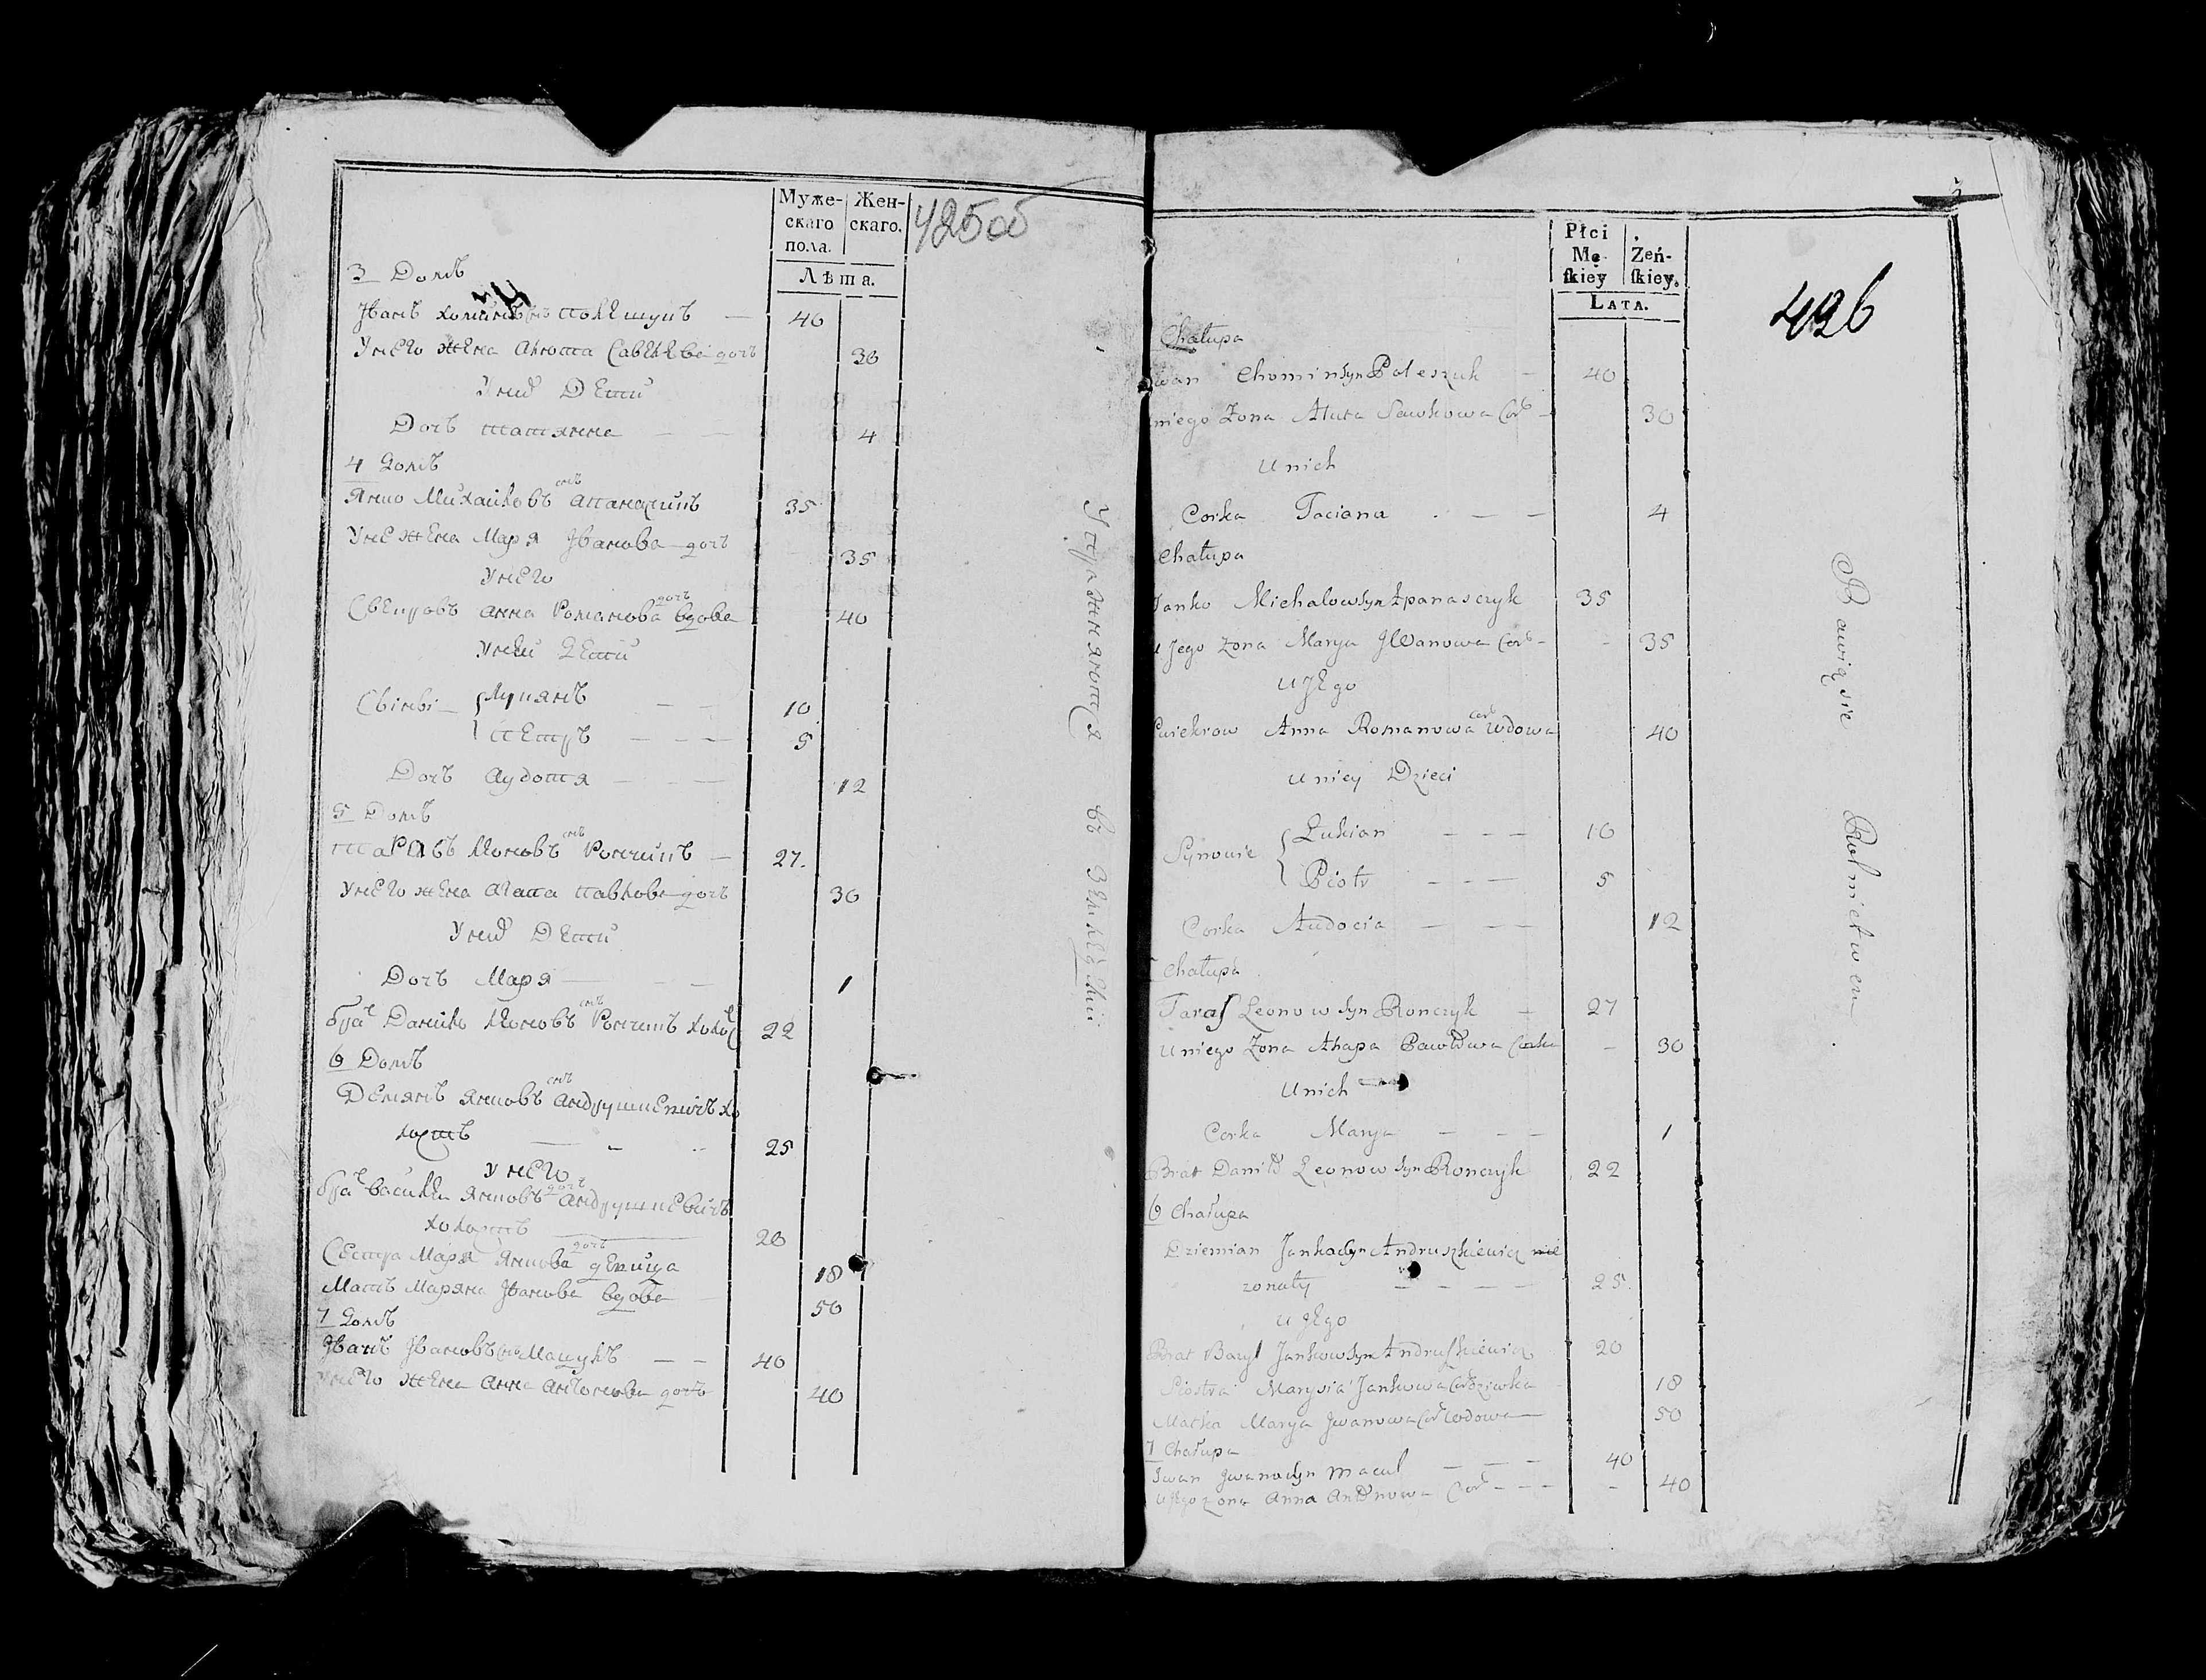 Муже-
скаго
пола.
Жен-
скаго.
Лѣта.
425об
3 Домъ
Иванъ Хоминъ снъ Полещукъ — 40
Унего жена Анюта Савкова дочь 30
Уних Дети
Дочь Татянна — — 4
4 Домъ
Янко Михайловъ снъ Апанасчикъ 35
Уне жена Маря Иванова дочь 35
Унего
Свекровъ Анна Романова дочь вдова 40
Уней Дети
Сынвi Лукянъ — — 10
Петръ — — — 5
Дочь Аудотя — — — 12
5 Домъ
Тарасъ Леоновъ снъ Рончикъ — 27.
Унего жена Агапа Павлова дочь 30
Уних Дети
Дочь Маря — — — 1
брат Данило Леоновъ снъ Рончикъ холос 22
6 Домъ
Демянъ Янковъ снъ Андрушкевичъ хо
лостъ — — — 25
Унего
брат Василий Янковъ Андрушкевичъ
холостъ 20
Сестра Маря Янкова дочь девица 18
Мать Маряна Иванова вдова 50
7 Домъ
Иванъ Ивановъ снъ Мацукъ — — 40
Унего жена Анна Антонова дочь 40
Упражняются во Земледелии
Płci
Mę-
ſkiey
Żeń-
ſkiey.
LATA.
426
Chałupa
Iwan Chomin Syn Poleszuk — 40
uniego Zona Anuta Sawkowa Cor — 30
Unich
Corka Taciana . — — 4
Chałupa
Janko Michalow Syn Apanasczyk 35
u Jego Zona Marya JWanowa Cor — - 35
UJEgo
Swiekrow Anna Romanowa Cor Wdowa 40
uniey Dzieci
Synowie Łukian — — — 10
Piotr — — — 5
Corka Audocia — — — 12
Chałupa
Taraſ Leonow Syn Ronczyk — 27
Uniego Zona Ahapa Pawłowa Corka — 30
Unich
Corka Marya — — — 1
Brat Daniło Leonow Syn Ronczyk 22
6 Chałupa
Dziemian Jankow Syn Andruszkiewicz nie
zonaty — — — — 25.
UJEgo
Brat Bazyl Jankow Syn Andruſzkiewicz 20
Siostra Marysia Jankowa Cor Dziewka 18
Matka Marya Jwanowa Cor Wdowa — 50
7 Chałupa
Iwan Jwanow Syn Macuk — — — 40
UJEgo zona Anna Antonowa Cor — — — - 40
Bawią sie Rolnictwem